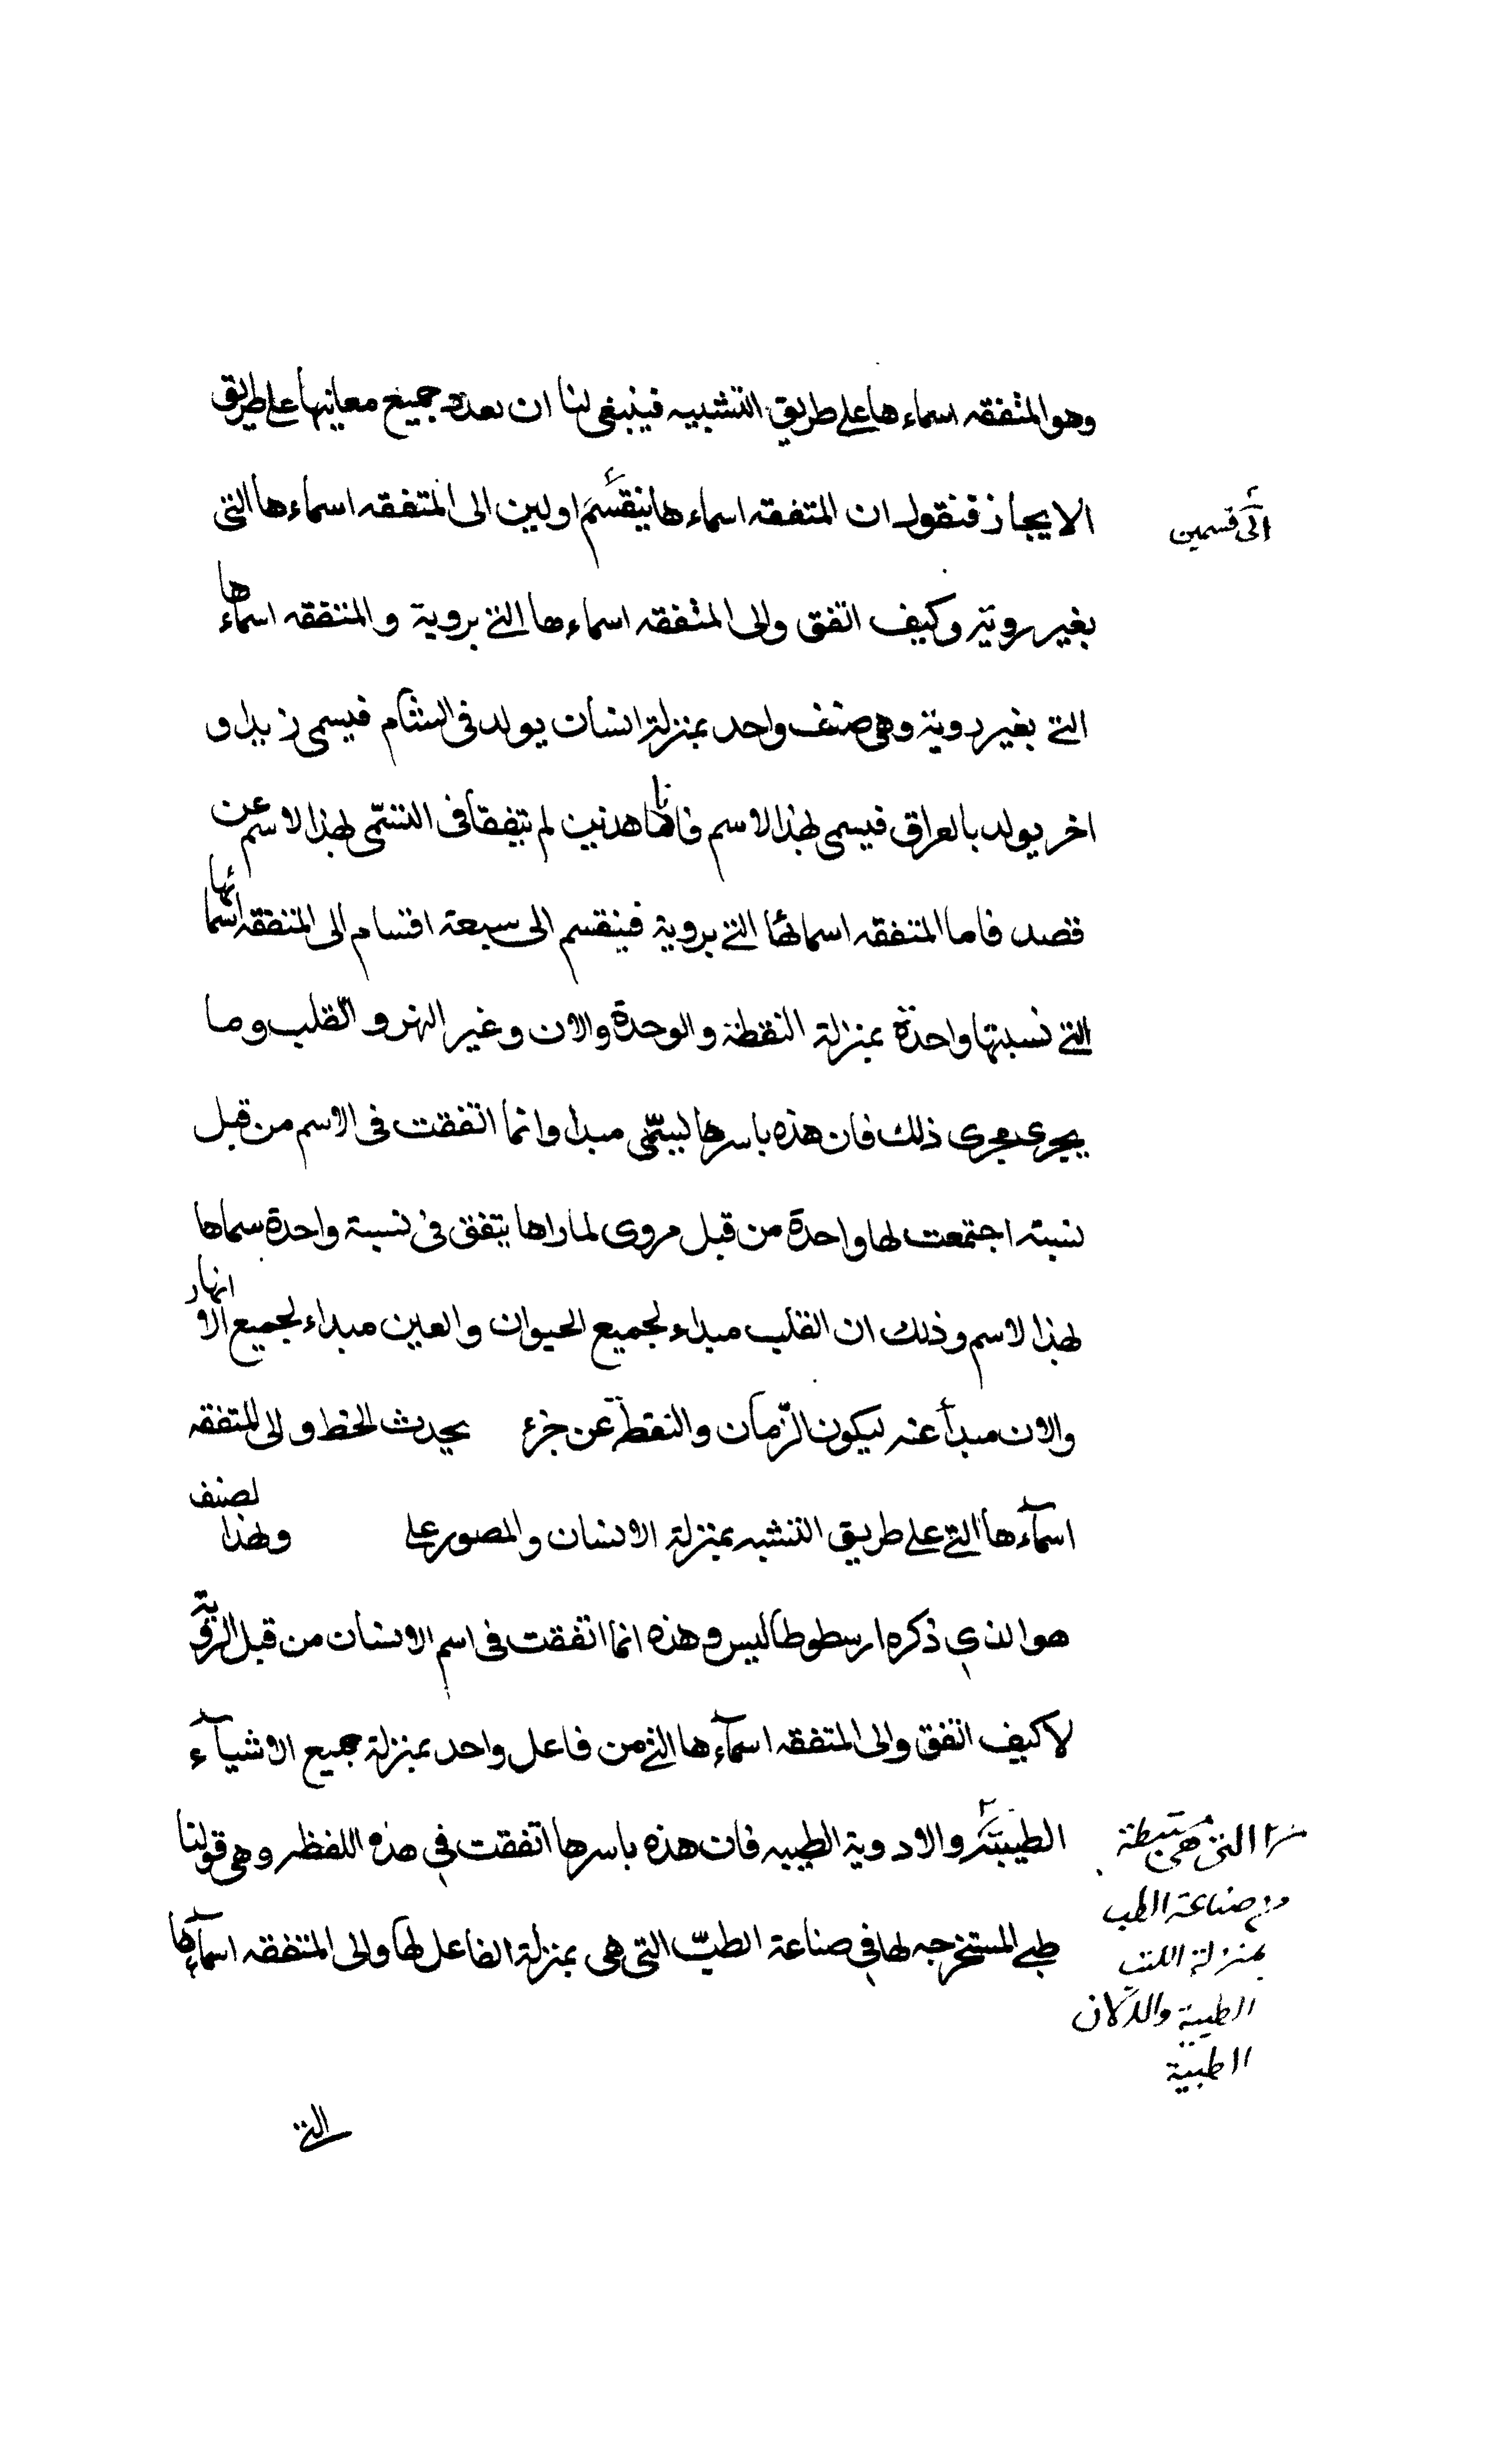 وهو المتفقه اسماءها على طريق التشبيه فينبغى لنا ان نعدد جميع معانيها على طريق
الايجاز فنقول ان المتفقه اسماءها ينقسم اولين الى المتفقه اسماءها التى
الى قسمين
بغير روية وكيف اتفق والى المتفقه اسماءها التى بروية والمتفقه اسماءها
التى بغير روية وهى صنف واحد بمنزلة انسان يولد فى الشام فيسمى زيدا و
اخر يولد بالعراق فيسمى بهذا الاسم فان هذين لم يتفقا فى التسمى بهذا الاسم عن
قصد فاما المتفقه اسمائها التى بروية فينقسم الى سبعة اقسام الى المتفقه اسمائها
التى نسبتها واحدة بمنزلة النقطة والوحدة والان وغير النهر والقلب وما
يجرى مجرى ذلك فان هذه باسرها ليسمى مبدا وانما اتفقت فى الاسم من قبل
نسبته اجتمعت لها واحدة من قبل مروى لما راها يتفق فى نسبة واحدة سماها
بهذا لاسم وذلك ان القلب مبداء لجميع الحيوان والعين مبداء لجميع الانهار
والان مبدأ عنه ليكون الزمان والنقطة عن جزء يحدث الخط والى المتفقه
اسمآءها التى على طريق التشبه بمنزلة الانسان والمصور على ولهذا لصنف
هو الذى ذكره ارسطوطاليس وهذه انما اتفقت فى اسم الانسان من قبل الروية
لا كيف اتفق والى المتفقه اسمآءها التى من فاعل واحد بمنزلة جميع الاشيآء
الطبيته والادوية الطبيه فان هذه باسرها اتفقت فى هذه اللفظه وهى قولنا
طبى المستخرجه لها فى صناعة الطبّ التى هى بمنزلة الفاعل لها والى المتفقه اسمآءها
التى هى مستنبطة
من صناعة الطب
بمنزلة الكتب
الطبية والدكان
الطبية
التى